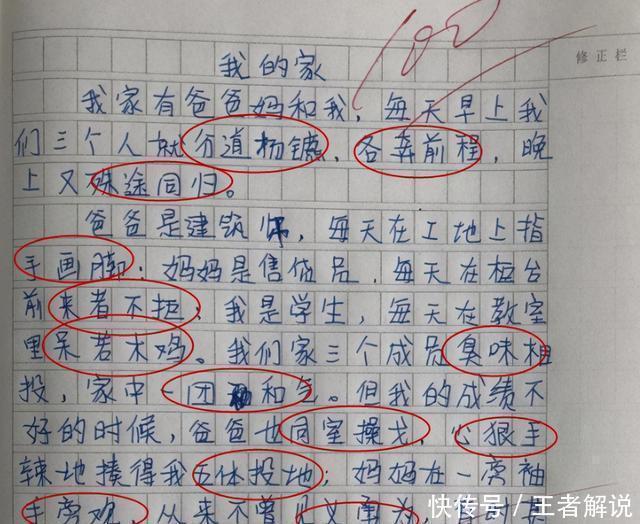 100
修正栏
我的家
我家有爸爸妈和我，每天早上我
们三个人就分道扬镳，各奔前程，晚
上又殊途同归。
爸爸是建筑师，每天在工地上指
手画脚；妈妈是售货员，每天在柜台
前来者不拒，我是学生，每天在教室
里呆若木鸡。我们家三个成员臭味相
投，家中一团和气。但我的成绩不
好的时候，爸爸也同室操戈，心狠手
辣地揍得我五体投地；妈妈在一旁袖
手旁观，从来不曾见义勇为
快传号／王者解说